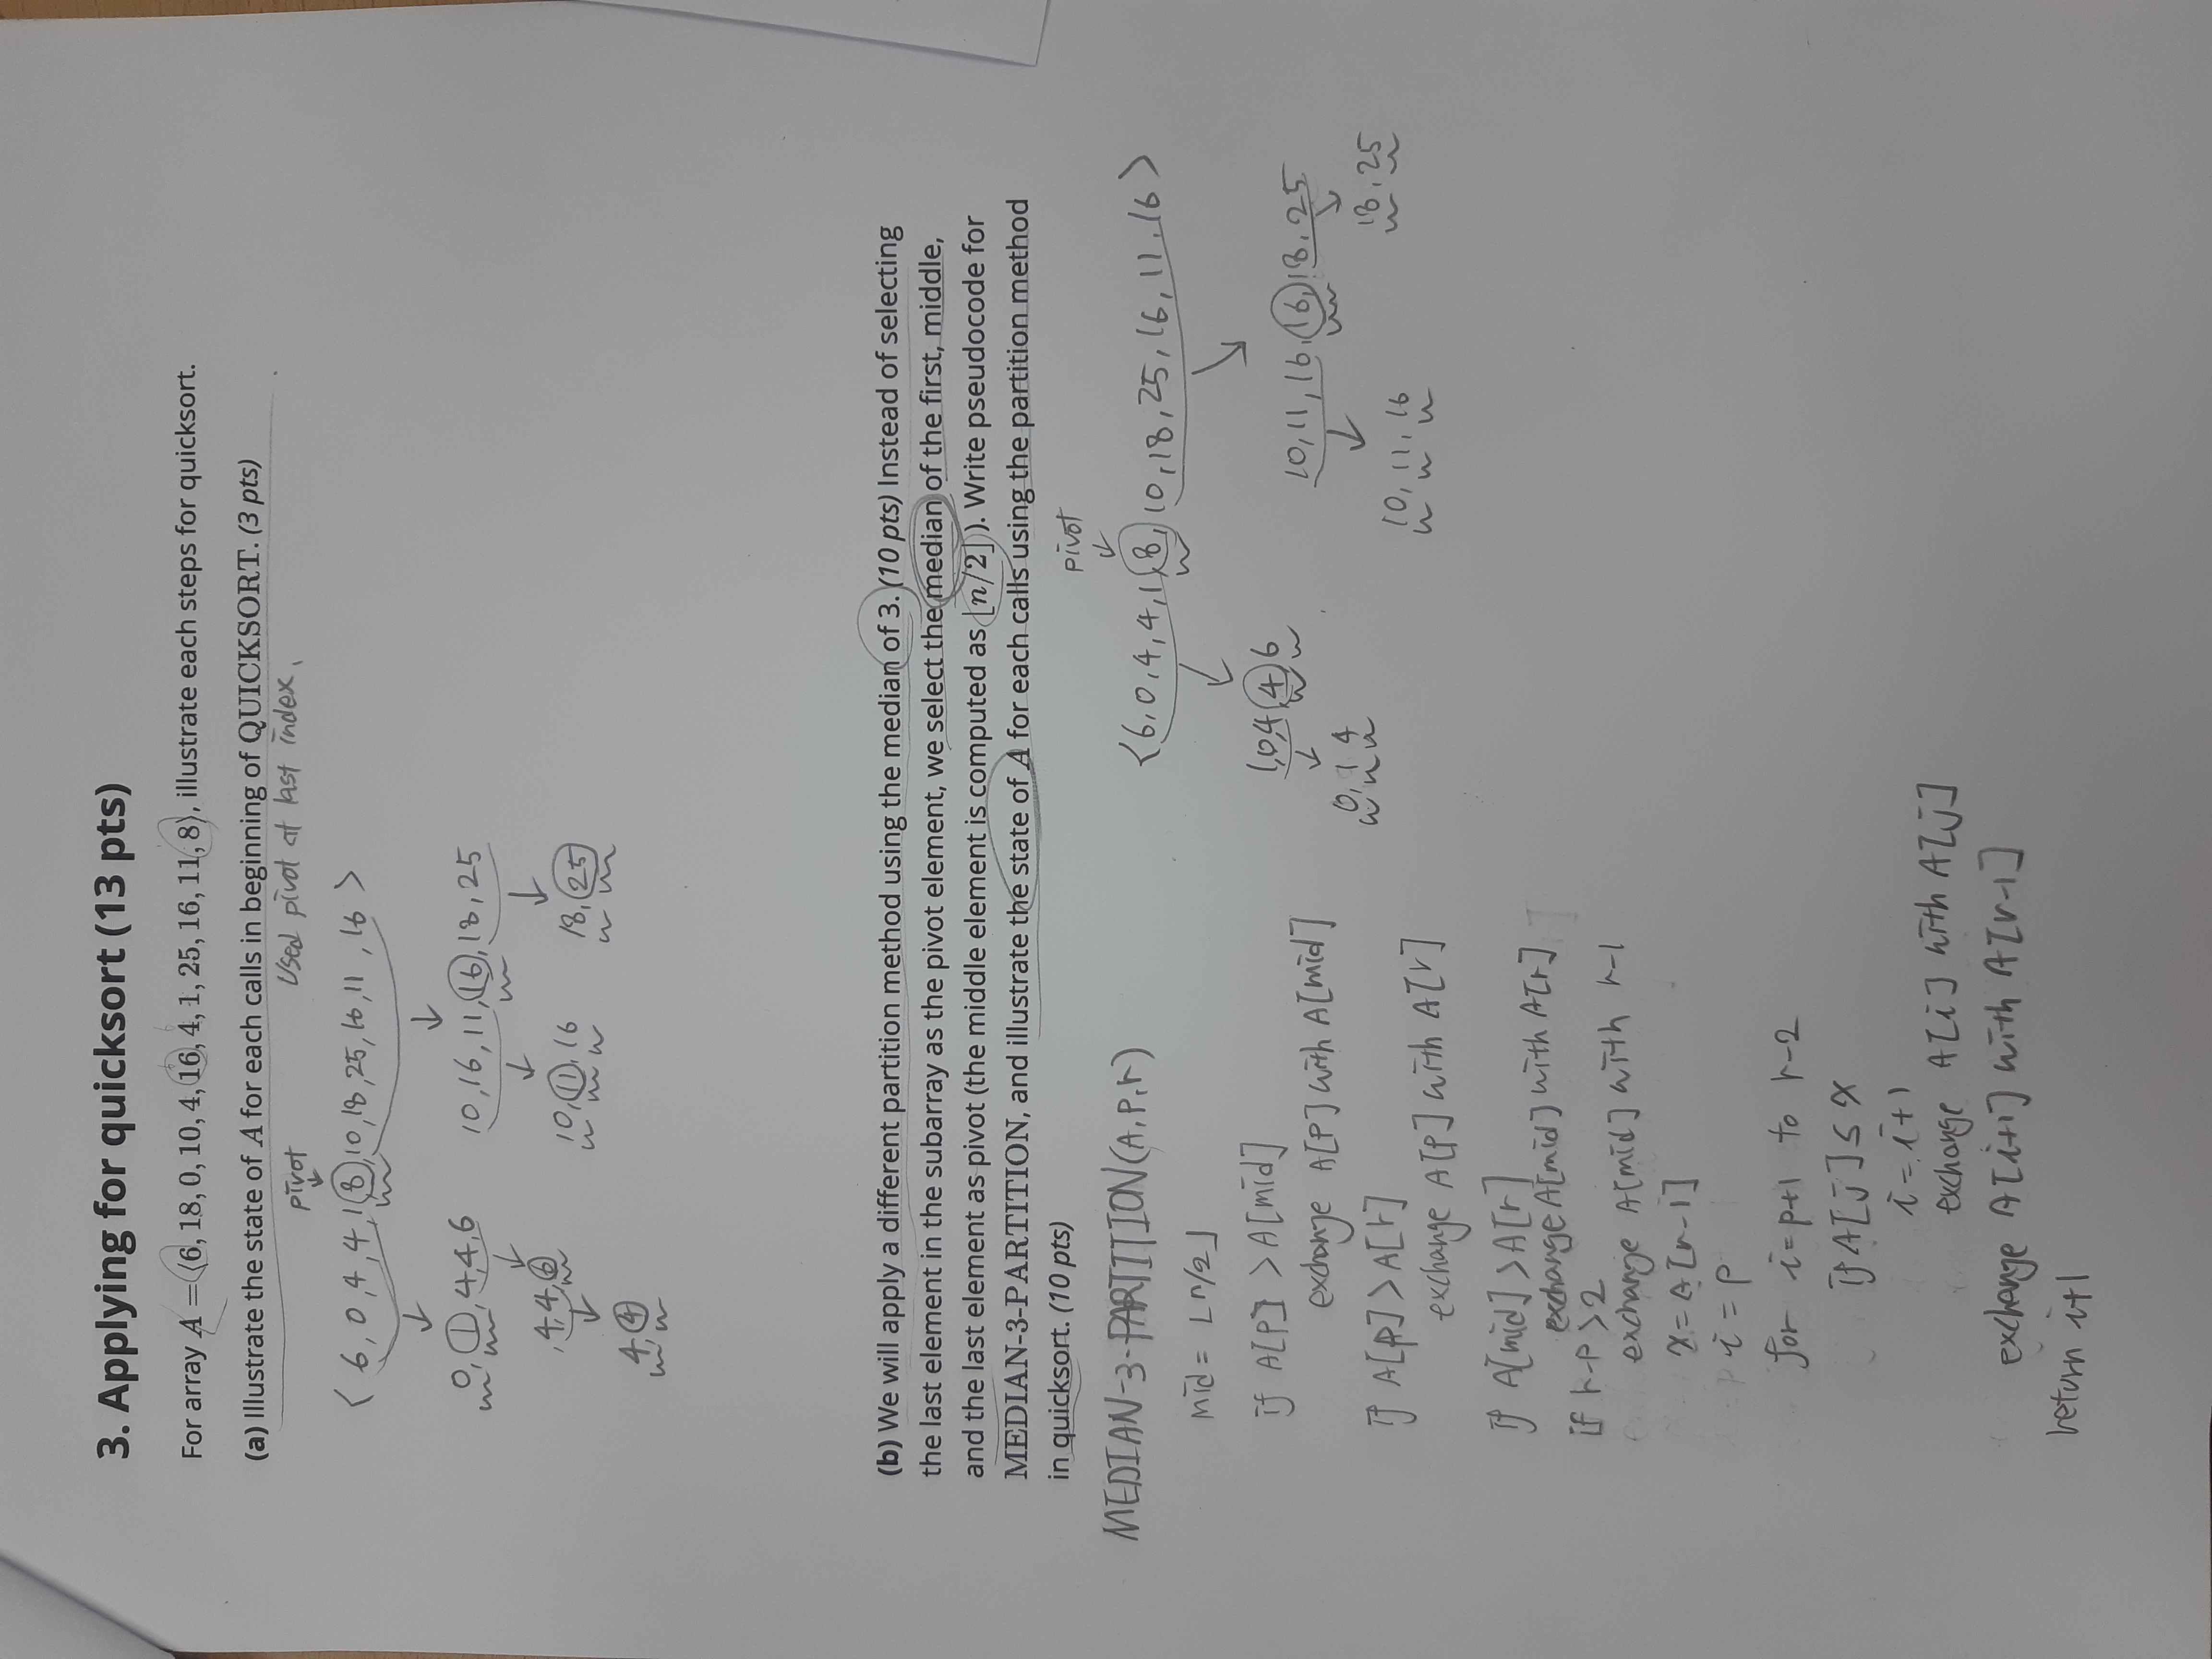 3. Applying for quicksort (13 pts)
For array A = ⟨6, 18, 0, 10, 4, 16, 4, 1, 25, 16, 11, 8⟩, illustrate each steps for quicksort.
(a) Illustrate the state of A for each calls in beginning of QUICKSORT. (3 pts)
pivot Used pivot at last index.
↓
< 6, 0, 4, 4, 1, 8, 10, 18, 25, 16, 11, 16 >
↓ ↓
0, 1, 4, 4, 6 10, 16, 11, 16, 18, 25
↓ ↓ ↓
4, 4, 6 10, 11, 16 18, 25
↓
4, 4
(b) We will apply a different partition method using the median of 3. (10 pts) Instead of selecting
the last element in the subarray as the pivot element, we select the median of the first, middle,
and the last element as pivot (the middle element is computed as ⌊n/2⌋ ). Write pseudocode for
MEDIAN-3-PARTITION, and illustrate the state of A for each calls using the partition method
in quicksort. (10 pts)
pivot
↓
<6, 0, 4, 4, 1, 8, 10, 18, 25, 16, 11, 16 >
↓ ↓
1, 0, 4, 4, 6
10, 11, 16, 16, 18, 25
↓ ↓ ↓
0, 1 4
18, 25
10, 11, 16
MEDIAN-3-PARTITION(A, p, r)
mid = ⌊n/2⌋
if A[p] > A[mid]
exchange A[p] with A[mid]
if A[p] > A[r]
exchange A[p] with A[r]
if A[mid] > A[r]
exchange A[mid] with A[r]
if r-p > 2
exchange A[mid] with r-1
x = A[r-1]
i = p
for i = p+1 to r-2
if A[j] ≤ x
i = i+1
exchange A[i] with A[j]
exchange A[i+1] with A[r-1]
return i+1